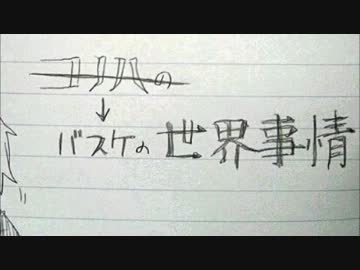 コノハの
↓
バスケの世界事情